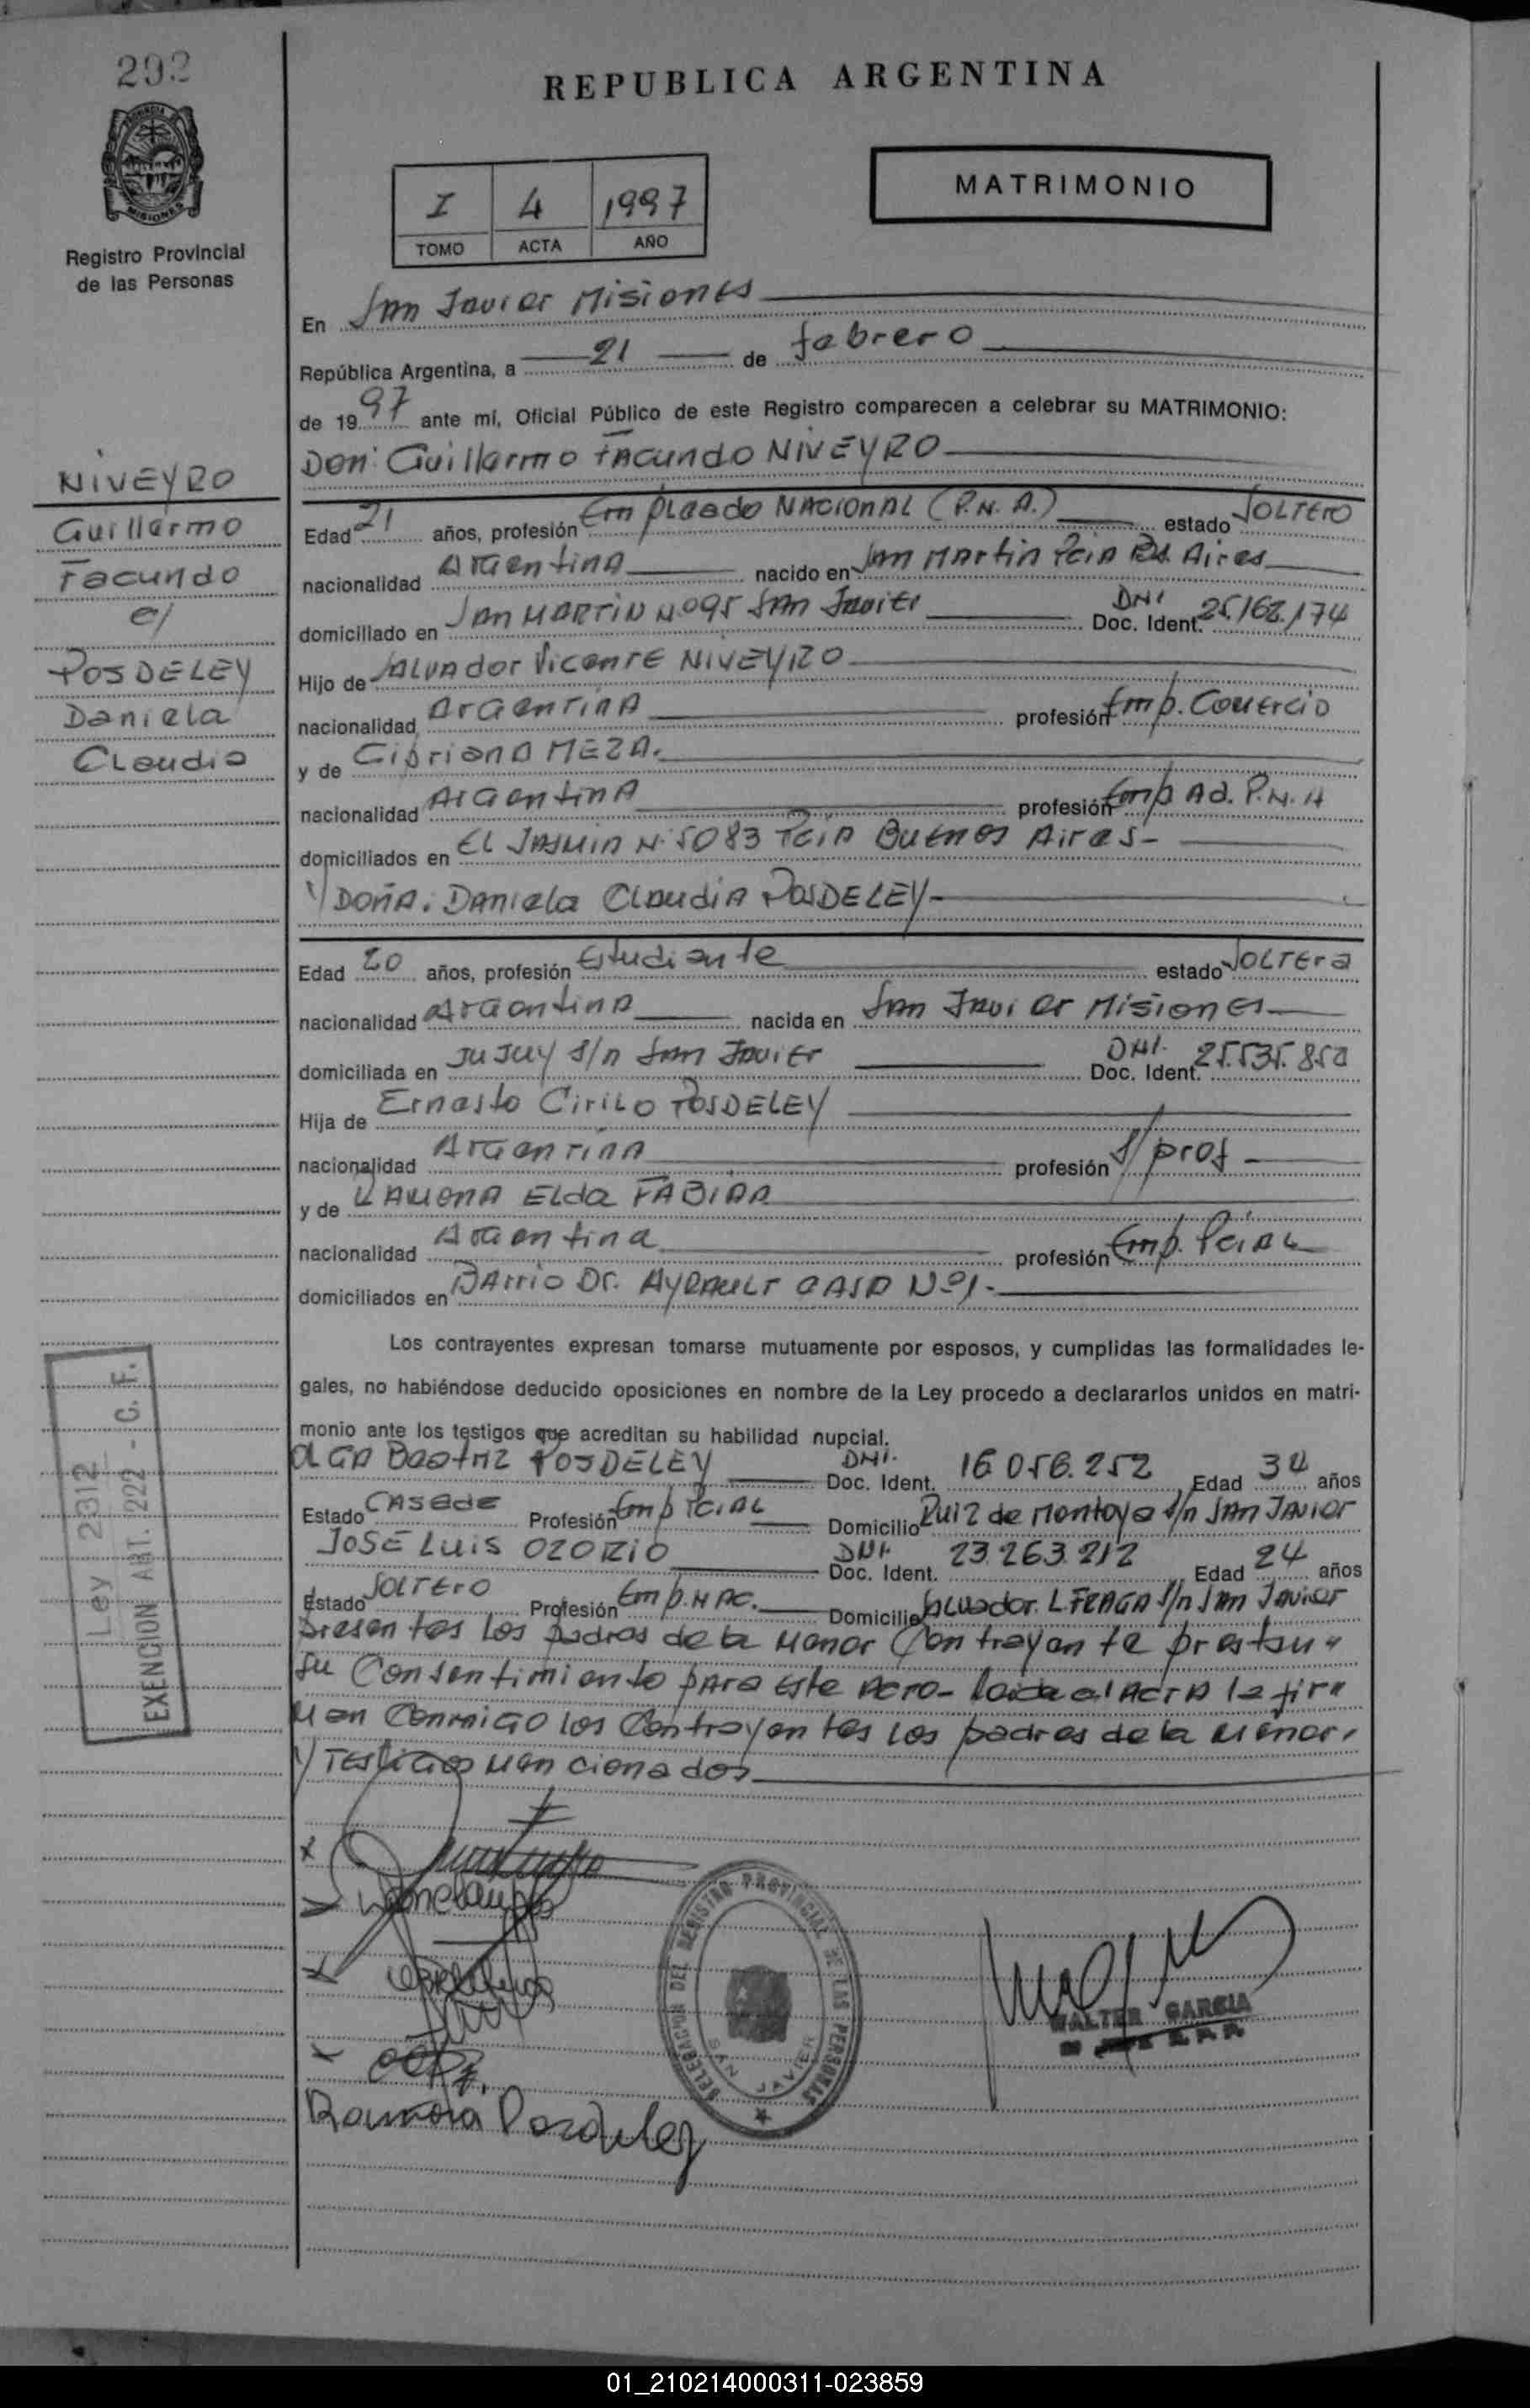 REPUBLICA ARGENTINA
MISIONES
Registro Provincial
de las Personas
I 4 1997
TOMO ACTA AÑO
MATRIMONIO
En San Javier Misiones
República Argentina, a 21 de febrero
de 1997 ante mí, Oficial Público de este Registro comparecen a celebrar su MATRIMONIO:
Don: Guillermo Facundo NIVEYRO
NIVEYRO
Guillermo
Facundo
c/
POSDELEY
Daniela
Claudia
Edad 21 años, profesión Empleado NACIONAL (P.N.A.) estado SOLTERO
nacionalidad Argentina nacido en San Martin Pcia Bs. Aires
domiciliado en San MARTIN Nº 95 San Javier DNI Doc. Ident. 25.162.174
Hijo de Salvador Vicente NIVEYRO
nacionalidad Argentina profesión Emp. Comercio
y de Cipriana MEZA.
nacionalidad Argentina profesión Emp Ad. P.N.A
domiciliados en El Jasmin N. 5083 Pcia Buenos Aires-
Y DOÑA: Daniela Claudia POSDELEY-
Edad 20 años, profesión Estudiante estado SOLTERA
nacionalidad Argentina nacida en San Javier Misiones
domiciliada en Jujuy s/n San Javier DNI. Doc. Ident. 25.535.850
Hija de Ernesto Cirilo POSDELEY
nacionalidad Argentina profesión s/prof
y de Ramona Elda FABIAN
nacionalidad Argentina profesión Emp. Pcial
domiciliados en Barrio Dr. AYRAULT CASA Nº 1.-
Los contrayentes expresan tomarse mutuamente por esposos, y cumplidas las formalidades le-
gales, no habiéndose deducido oposiciones en nombre de la Ley procedo a declararlos unidos en matri-
monio ante los testigos que acreditan su habilidad nupcial.
OLGA Beatriz POSDELEY DNI. Doc. Ident. 16.056.252 Edad 34 años
Estado Casada Profesión Emp Pcial Domicilio Ruiz de Montoya s/n San Javier
JOSÉ Luis OZORIO DNI. Doc. Ident. 23.263.212 Edad 24 años
Estado Soltero Profesión Emp. NAC. Domicilio s/n San Javier
Presentes los padres de la menor Contrayente prestan
su Consentimiento para este Acto- Leida el Acta la fir"
man Conmigo los Contrayentes los padres de la menor,
y Testigos mencionados
Ley 2312
EXENCION ART. 222 - C. F.
DELEGACION DEL REGISTRO PROVINCIAL DE LAS PERSONAS
SAN JAVIER
WALTER GARCIA
Ramona Posdeley
01_210214000311-023859